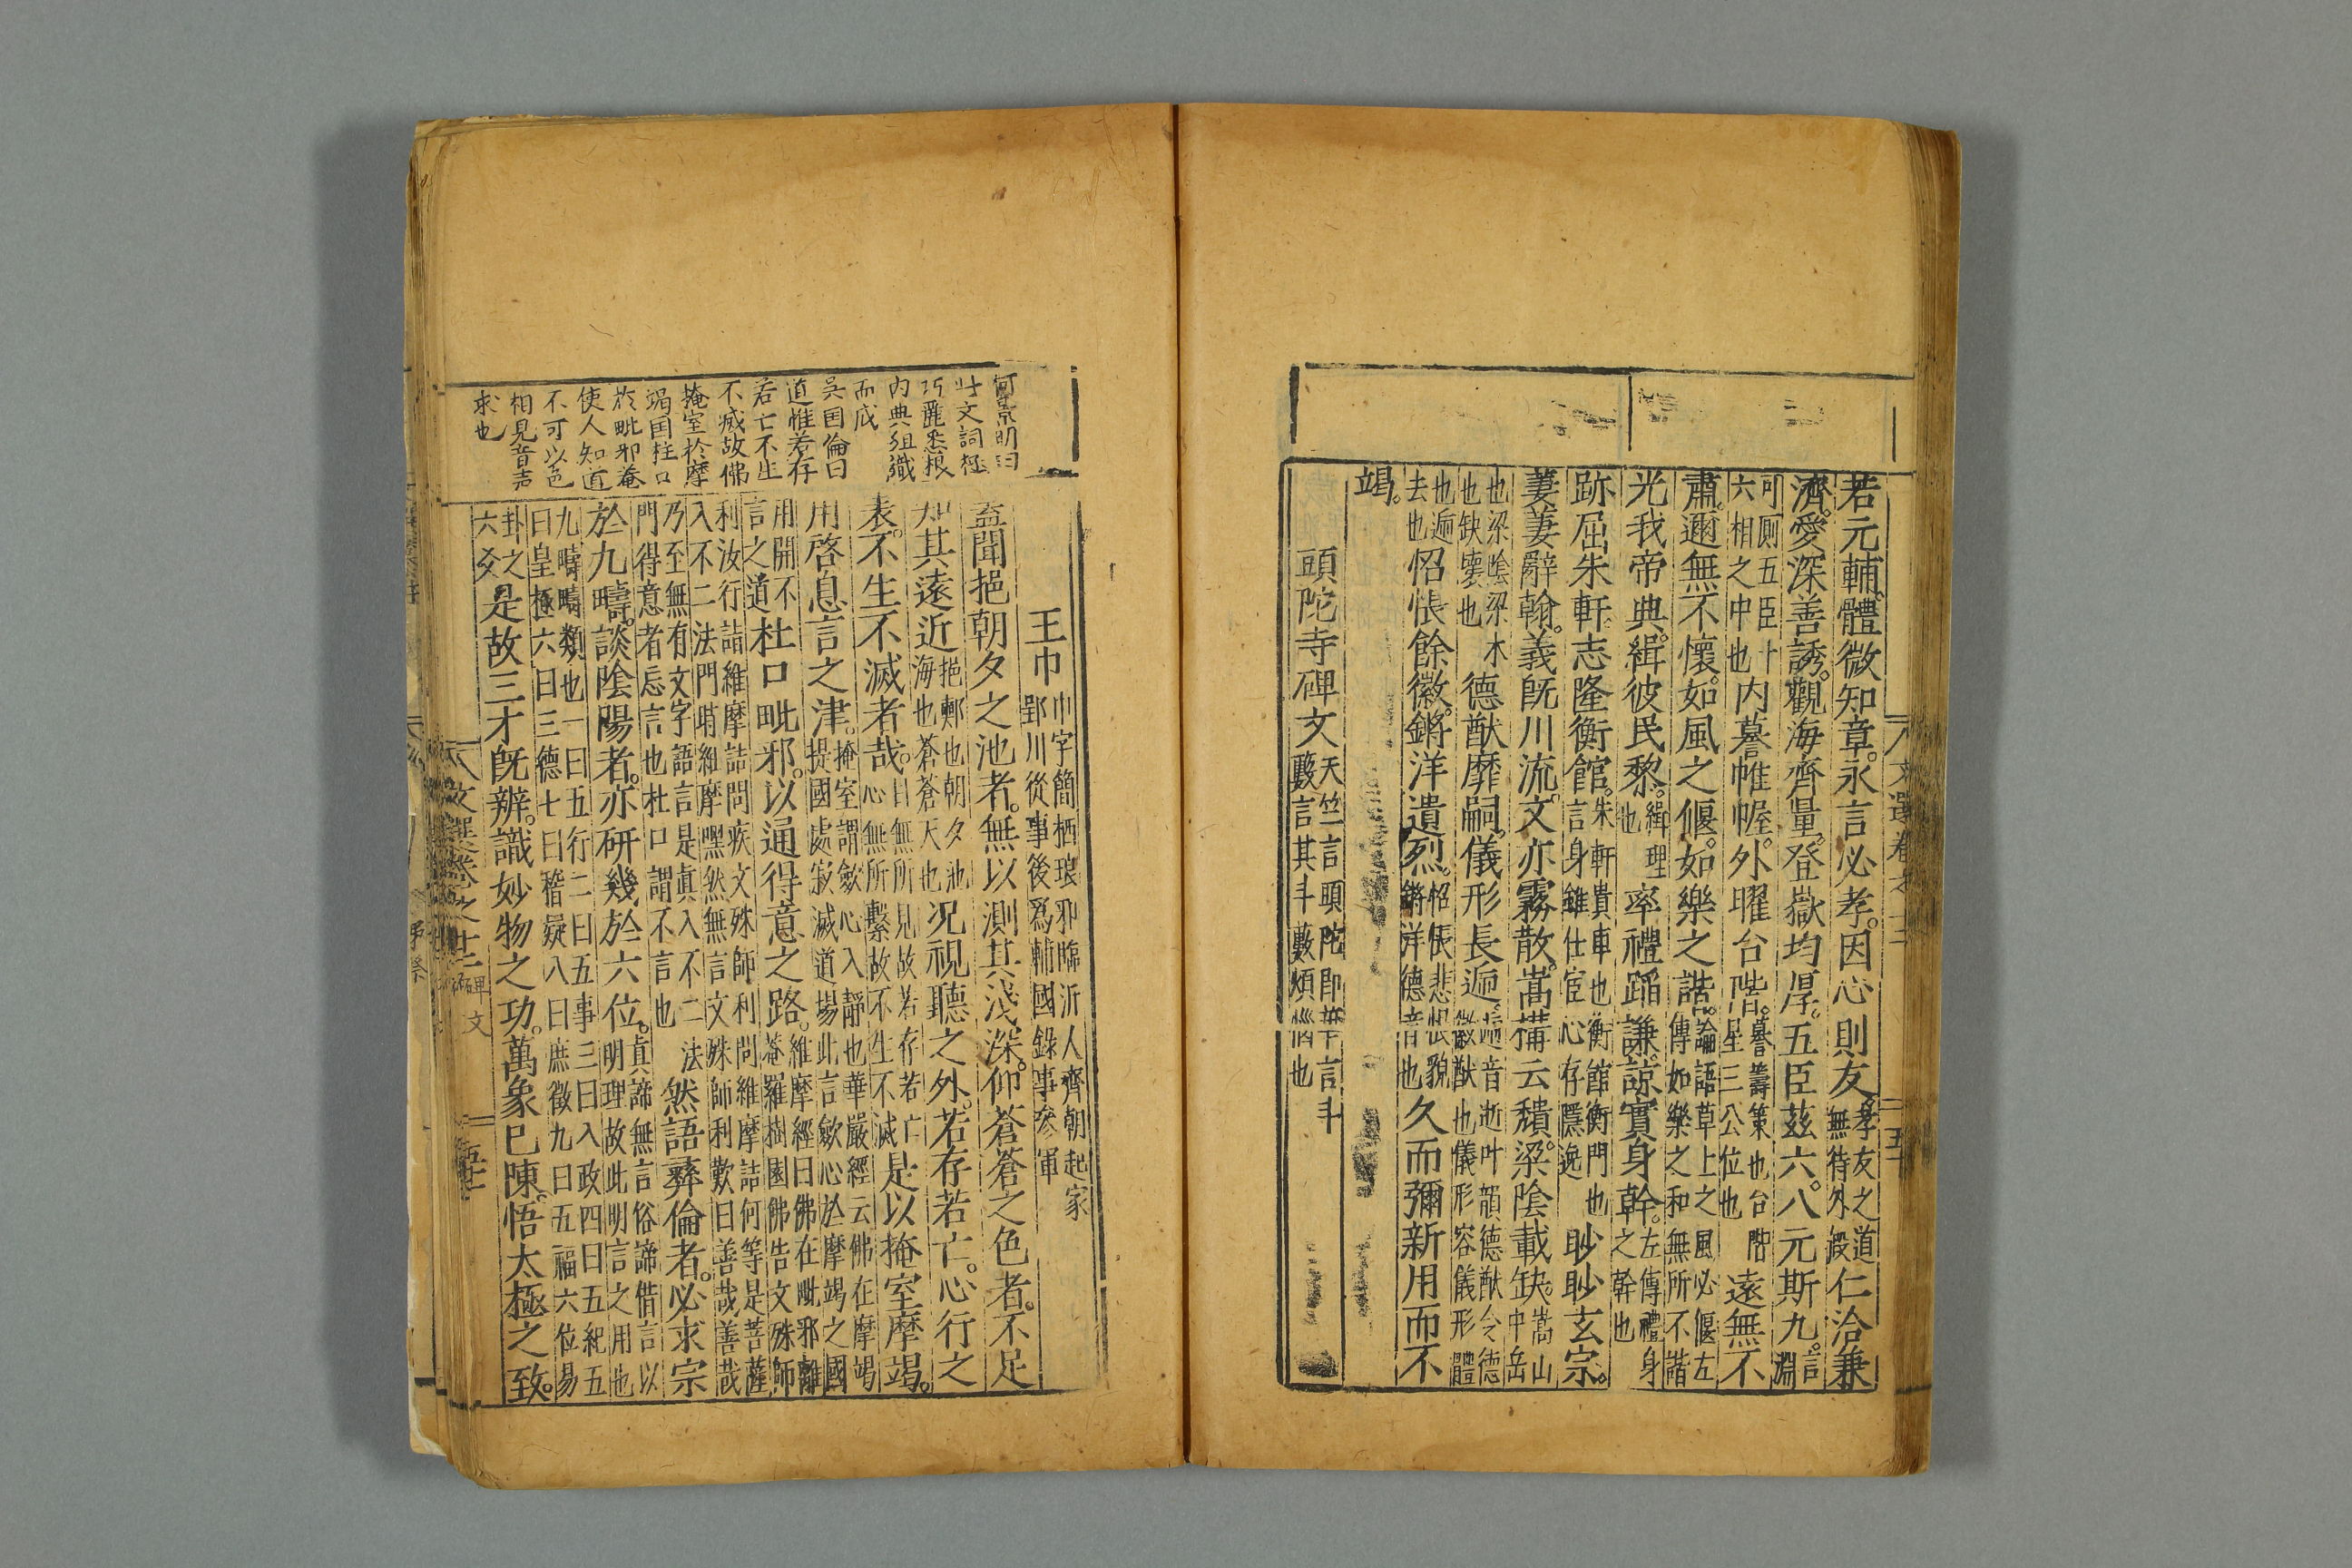 若元輔。體微知章。永言必孝。因心則友孝友之道無待外設仁洽兼
濟。愛深善誘。觀海齊量。登嶽均厚。五臣茲六。八元斯九。言淵
可厠五臣十六相之中也内謩帷幄。外曜台階。謩籌策也台階星三公位也遠無不
肅。邇無不懷。如風之偃。如樂之諧。論語草上之風必偃左傳如樂之和無所不諧
光我帝典。緝彼民黎。緝理也率禮蹈謙。諒實身幹。左傳禮身之幹也
跡屈朱軒。志隆衡館。朱軒貴車也衡館衡門也言身雖仕宦心存隱逸眇眇玄宗。
萋萋辭翰。義旣川流。文亦霧散。嵩構云頽。梁陰載缺。嵩山中岳
也梁陰梁木也缺壞也德猷靡嗣。儀形長逝。
也逝去也怊悵餘徽。鏘洋遺烈。怊悵悲恨貌鏘洋德音也久而彌新用而不
竭。
頭陀寺碑文天竺言頭陀即華言斗藪言其斗藪煩惱也
文選卷之
王巾巾字簡栖琅邪臨沂人齊朝起家郢州從事後爲輔國錄事參軍
蓋聞挹朝夕之池者。無以測其淺深。仰蒼蒼之色者。不足
知其遠近挹𣂏也朝夕池海也蒼蒼天也况視聽之外。若存若亡。心行之
表。不生不滅者哉。目無所見故若存若亡心無所繫故不生不滅是以掩室摩竭。
用啓息言之津。掩室謂斂心入靜也華嚴經云佛在摩竭提國處寂滅道場此言斂心於摩竭之國
用開不言之道杜口毗邪。以通得意之路。維摩經曰佛在毗邪離菴羅樹園佛告文殊師
利汝行詣維摩詰問疾文殊師利問維摩詰何等是菩薩入不二法門時維摩嘿然無言文殊師利歎曰善哉善哉
乃至無有文字語言是真入不二法門得意者忘言也杜口謂不言也然語彝倫者。必求宗
於九疇。談陰陽者。亦研幾於六位。真諦無言俗諦借言以明理故此明言之用也
九疇疇類也一曰五行二曰五事三曰入政四曰五紀五曰皇極六曰三德七曰稽疑八曰庶徵九曰五福六位易
卦之六爻是故三才旣辨。識妙物之功。萬象已陳。悟太極之致。
文選卷之十二
碑文
何景明曰
此文詞極
巧麗悉根
内典組織
而成
吳国倫曰
道惟若存
若亡不生
不滅故佛
掩室於摩
竭国杜口
於毗邪菴
使人知道
不可以色
相見音声
求也